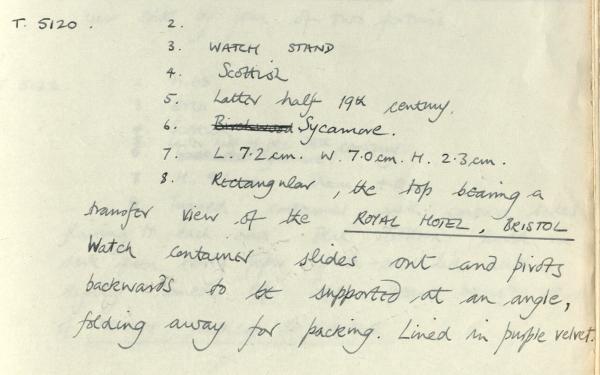 T. 5120. 2.
3. WATCH STAND
4. Scottish
5. Latter half 19th century.
6. Birchwood Sycamore.
7. L. 7.2 cm. W. 7.0 cm. H. 2.3 cm.
8. Rectangular, the top bearing a
transfer view of the ROYAL HOTEL, BRISTOL
Watch container slides out and pivots
backwards to be supported at an angle,
folding away for packing. Lined in purple velvet.